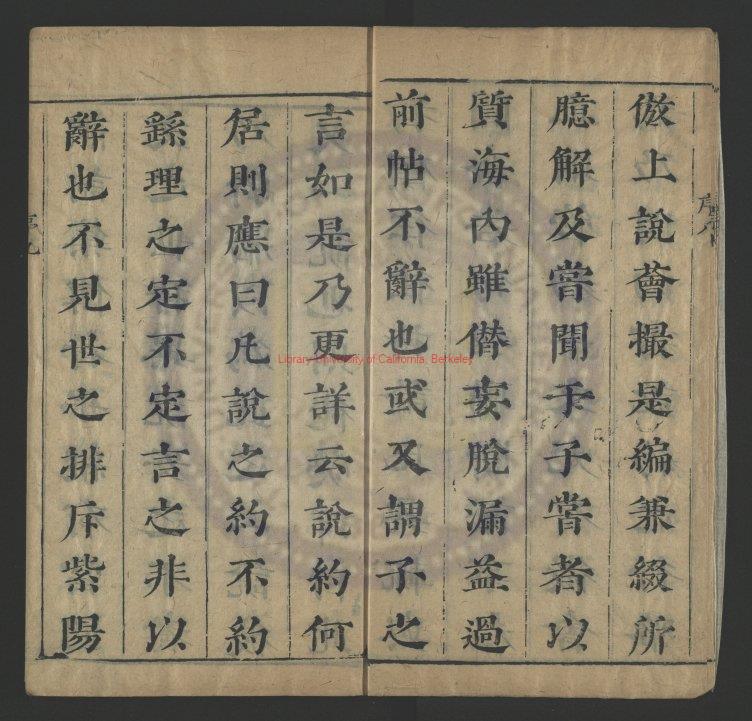 倣上說薈撮是編兼綴所
臆解及嘗聞于子嘗者以
質海內雖僭妄脫漏益過
前帖不辭也或又謂子之
言如是乃更詳云說約何
居則應曰凡說之約不約
繇理之定不定言之非以
辭也不見世之排斥紫陽
Library University of California, Berkeley